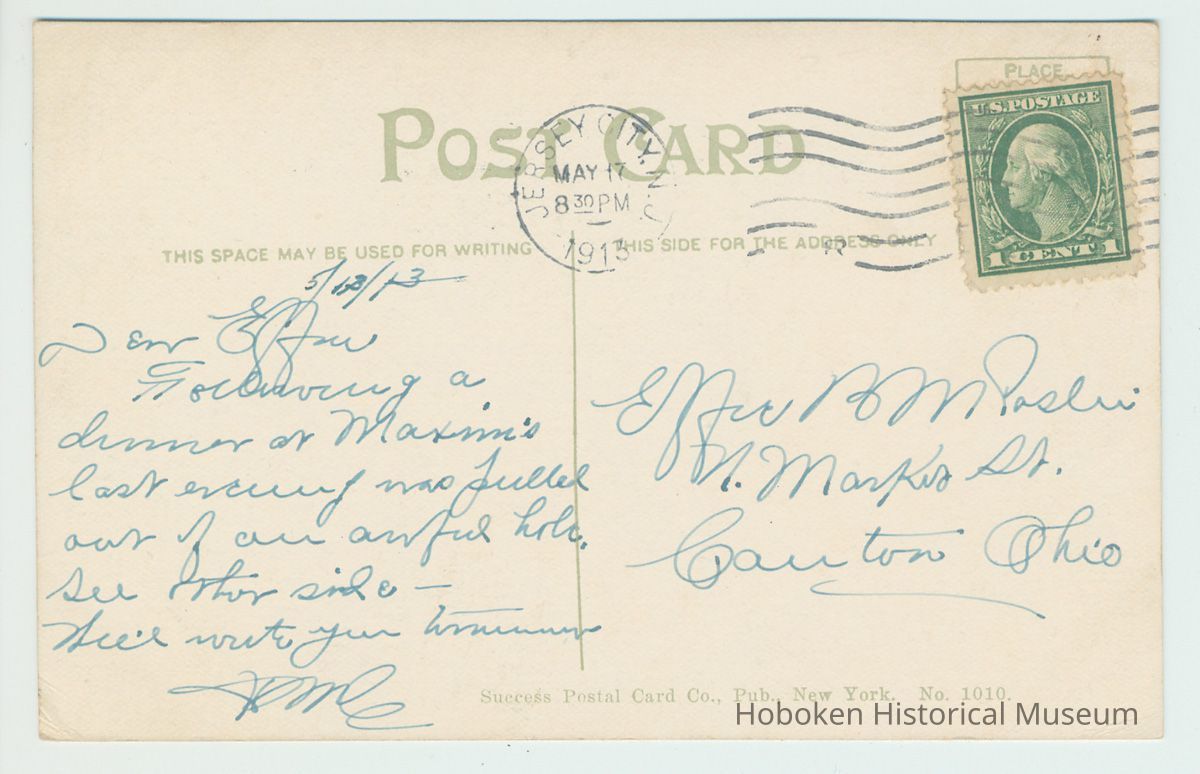 PLACE
U.S. POSTAGE
1 CENT 1
POST CARD
JERSEY CITY. N.J.
MAY 17
8 30 PM
1913
THIS SPACE MAY BE USED FOR WRITING
THIS SIDE FOR THE ADDRESS ONLY
Dear Effie
Following a
dinner at Maxim's
last evening was pulled
out of an awful hole.
See other side —
Will write you tomorrow
Effie B
N. Market St.
Canton Ohio
Success Postal Card Co., Pub., New York. No. 1010.
Hoboken Historical Museum